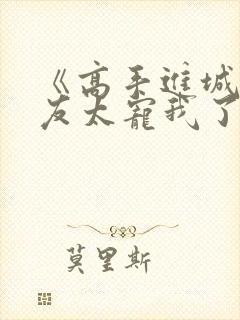 《高手进城
友太宠我了
莫里斯